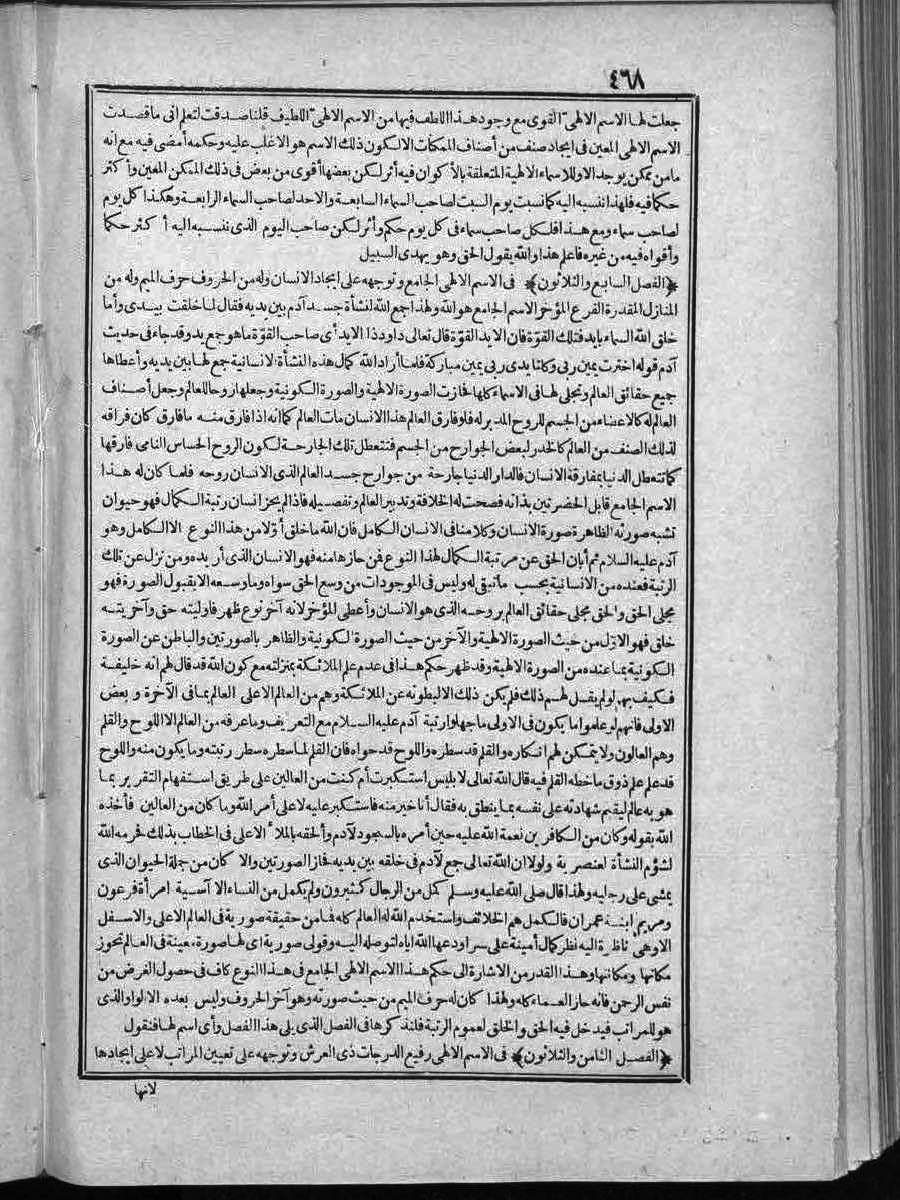 ٤٦٨
جعلت لها الاسم الالهى القوى مع وجود هذا اللطف فيها من الاسم الالهى اللطيف قلنا صدقت لتعلم انى ما قصدت
الاسم الالهى المعين فى ايجاد صنف من أصناف الممكنات الا لكون ذلك الاسم هو الاغلب عليه وحكمه أمضى فيه مع انه
ما من ممكن يوجد الا وللاسماء الالهية المتعلقة بالأكوان فيه أثر لكن بعضها أقوى من بعض فى ذلك الممكن المعين وأكثر
حكما فيه فلهذا ننسبه اليه كما نسبت يوم السبت لصاحب السماء السابعة والاحد لصاحب السماء الرابعة وهكذا كل يوم
لصاحب سماء ومع هذا فلكل صاحب سماء فى كل يوم حكم وأثر لكن صاحب اليوم الذى ننسبه اليه أكثر حكما
وأقواه فيه من غيره فاعلم هذا والله يقول الحق وهو يهدى السبيل
﴿الفصل السابع والثلاثون﴾ فى الاسم الالهى الجامع وتوجهه على ايجاد الانسان وله من الحروف حرف الميم وله من
المنازل المقدرة الفرع المؤخر الاسم الجامع هو الله ولهذا جمع الله لنشأة جسد آدم بين يديه فقال لما خلقت بيدى وأما
خلق الله السماء بايد فتلك القوّة فان الايد القوّة قال تعالى داود ذا الايد أى صاحب القوّة ما هو جمع يد وقد جاء فى حديث
آدم قوله اخترت يمين ربى وكلتا يدى ربى يمين مباركة فلما أراد الله كمال هذه النشأة الانسانية جمع لها بين يديه وأعطاها
جميع حقائق العالم وتجلى لها فى الاسماء كلها فحازت الصورة الالهية والصورة الكونية وجعلها روحا للعالم وجعل أصناف
العالم له كالاعضاء من الجسم للروح المدبر له فلو فارق العالم هذا الانسان مات العالم كما انه اذا فارق منه ما فارق كان فراقه
لذلك الصنف من العالم كالخدر لبعض الجوارح من الجسم فتتعطل تلك الجارحة لكون الروح الحساس النامى فارقها
كما تتعطل الدنيا بمفارقة الانسان فالدار الدنيا جارحة من جوارح جسد العالم الذى الانسان روحه فلما كان له هذا
الاسم الجامع قابل الحضرتين بذاته فصحت له الخلافة وتدبير العالم وتفصيله فاذا لم يحز انسان رتبة الكمال فهو حيوان
تشبه صورته الظاهرة صورة الانسان وكلامنا فى الانسان الكامل فان الله ما خلق أولا من هذا النوع الا الكامل وهو
آدم عليه السلام ثم أبان الحق عن مرتبة الكمال لهذا النوع فمن حازها منه فهو الانسان الذى أريده ومن نزل عن تلك
الرتبة فعنده من الانسانية بحسب ما تبقى له وليس فى الموجودات من وسع الحق سواه وما وسعه الا بقبول الصورة فهو
مجلى الحق والحق مجلى حقائق العالم بروحه الذى هو الانسان وأعطى المؤخر لانه آخر نوع ظهر فاوليته حق وآخريته
خلق فهو الاوّل من حيث الصورة الالهية والآخر من حيث الصورة الكونية والظاهر بالصورتين والباطن عن الصورة
الكونية بما عنده من الصورة الالهية وقد ظهر حكم هذا فى عدم علم الملائكة بمنزلته مع كون الله قد قال لهم انه خليفة
فكيف بهم لو لم يقل لهم ذلك فلم يكن ذلك الا لبطونه عن الملائكة وهم من العالم الاعلى العالم بما فى الآخرة وبعض
الاولى فانهم لو علموا ما يكون فى الاولى ما جهلوا رتبة آدم عليه السلام مع التعريف وما عرفه من العالم الا اللوح والقلم
وهم العالون ولا يتمكن لهم انكاره والقلم قد سطره واللوح قد حواه فان القلم لما سطره سطر رتبته وما يكون منه واللوح
قد علم علم ذوق ما خطه القلم فيه قال الله تعالى لابليس استكبرت أم كنت من العالين على طريق استفهام التقرير بما
هو به عالم ليقيم شهادته على نفسه بما ينطق به فقال أنا خير منه فاستكبر عليه لا على أمر الله وما كان من العالين فأخذه
الله بقوله وكان من الكافرين نعمة الله عليه حين أمره بالسجود لآدم وألحقه بالملأ الاعلى فى الخطاب بذلك فحرمه الله
لشؤم النشأة العنصرية ولولا ان الله تعالى جمع لآدم فى خلقه بين يديه فحاز الصورتين والا كان من جملة الحيوان الذى
يمشى على رجليه ولهذا قال صلى الله عليه وسلم كمل من الرجال كثيرون ولم يكمل من النساء الا آسية امرأة فرعون
ومريم ابنة عمران فالكمل هم الخلائف واستخدم الله له العالم كله فما من حقيقة صورية فى العالم الاعلى والاسفل
الا وهى ناظرة اليه نظر كمال أمينة على سر اودعها الله اياه لتوصله اليه وقولى صورية اى لها صورة معينة فى العالم تحوز
مكانها ومكانتها وهذا القدر من الاشارة الى حكم هذا الاسم الالهى الجامع فى هذا النوع كاف فى حصول الغرض من
نفس الرحمن فانه حاز العماء كله ولهذا كان له حرف الميم من حيث صورته وهو آخر الحروف وليس بعده الا الواو الذى
هو للمراتب فيدخل فيه الحق والخلق لعموم الرتبة فلنذكرها فى الفصل الذى يلى هذا الفصل وأى اسم لها فنقول
﴿الفصل الثامن والثلاثون﴾ فى الاسم الالهى رفيع الدرجات ذى العرش وتوجهه على تعيين المراتب لا على ايجادها
لانها